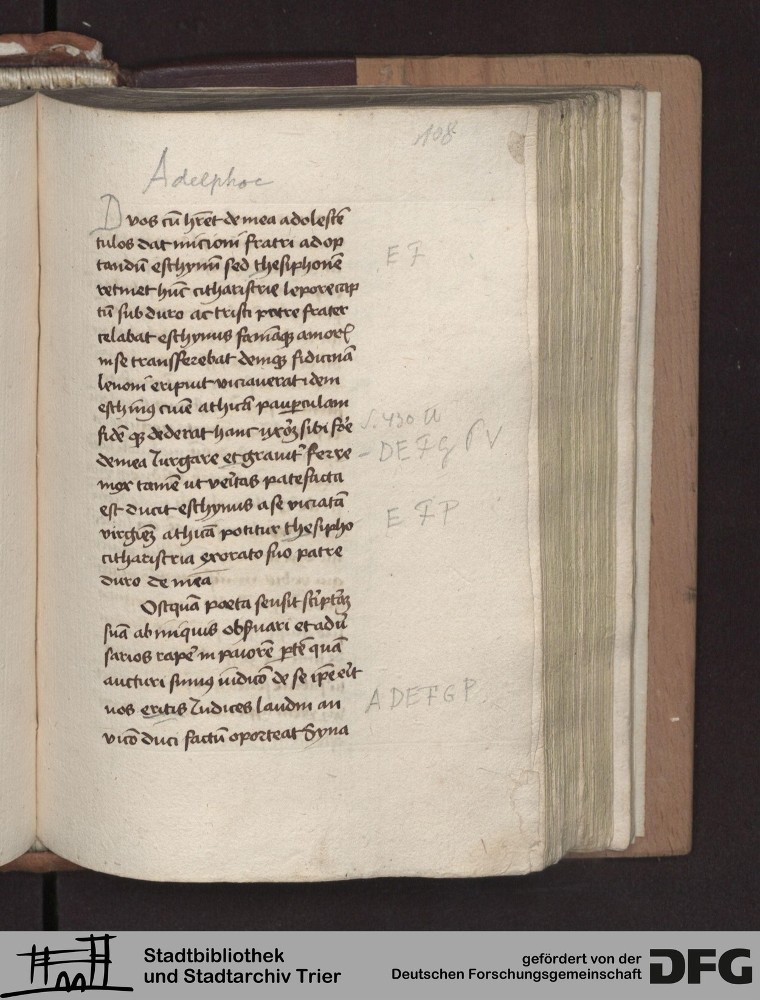 108
Adelphoe
Duos cū hr̄et demea adolescē
tulos dat micioni fratri adop
tandū eschynū sed thesiphonē
retinet hūc citharistrie lepore cap
tū sub duro ac tristi patre frater
celabat eschynus famāqꝫ amorꝭ
in se transfferebat deniqꝫ fidicinā
lenoni eripiuit viciaverat idem
eschinꝯ ciuē athicā paupculam
fidē qꝫ dederat hanc uxorꝫ sibi fore
demea Iurgare et grauit̾ ferre
mox tamē ut veritas patefacta
est ducit eschynus a se viciatā
virginē athicā potitur thesipho
citharistria exorato suo patre
duro demea
Ostquā poeta sensit scͥpturā
suā ab iniquis obseruari et adu̾
sarios rape̾ in paiorē ptē quā
aucturi sumꝯ iudicō de se ipe erit
uos eritis Iudices laudin an
vicō duci factū oporteat Syna
E F
v. 430 u
– DEFG P V
E F P
A DEFGP
Stadtbibliothek
und Stadtarchiv Trier
gefördert von der
Deutschen Forschungsgemeinschaft
DFG